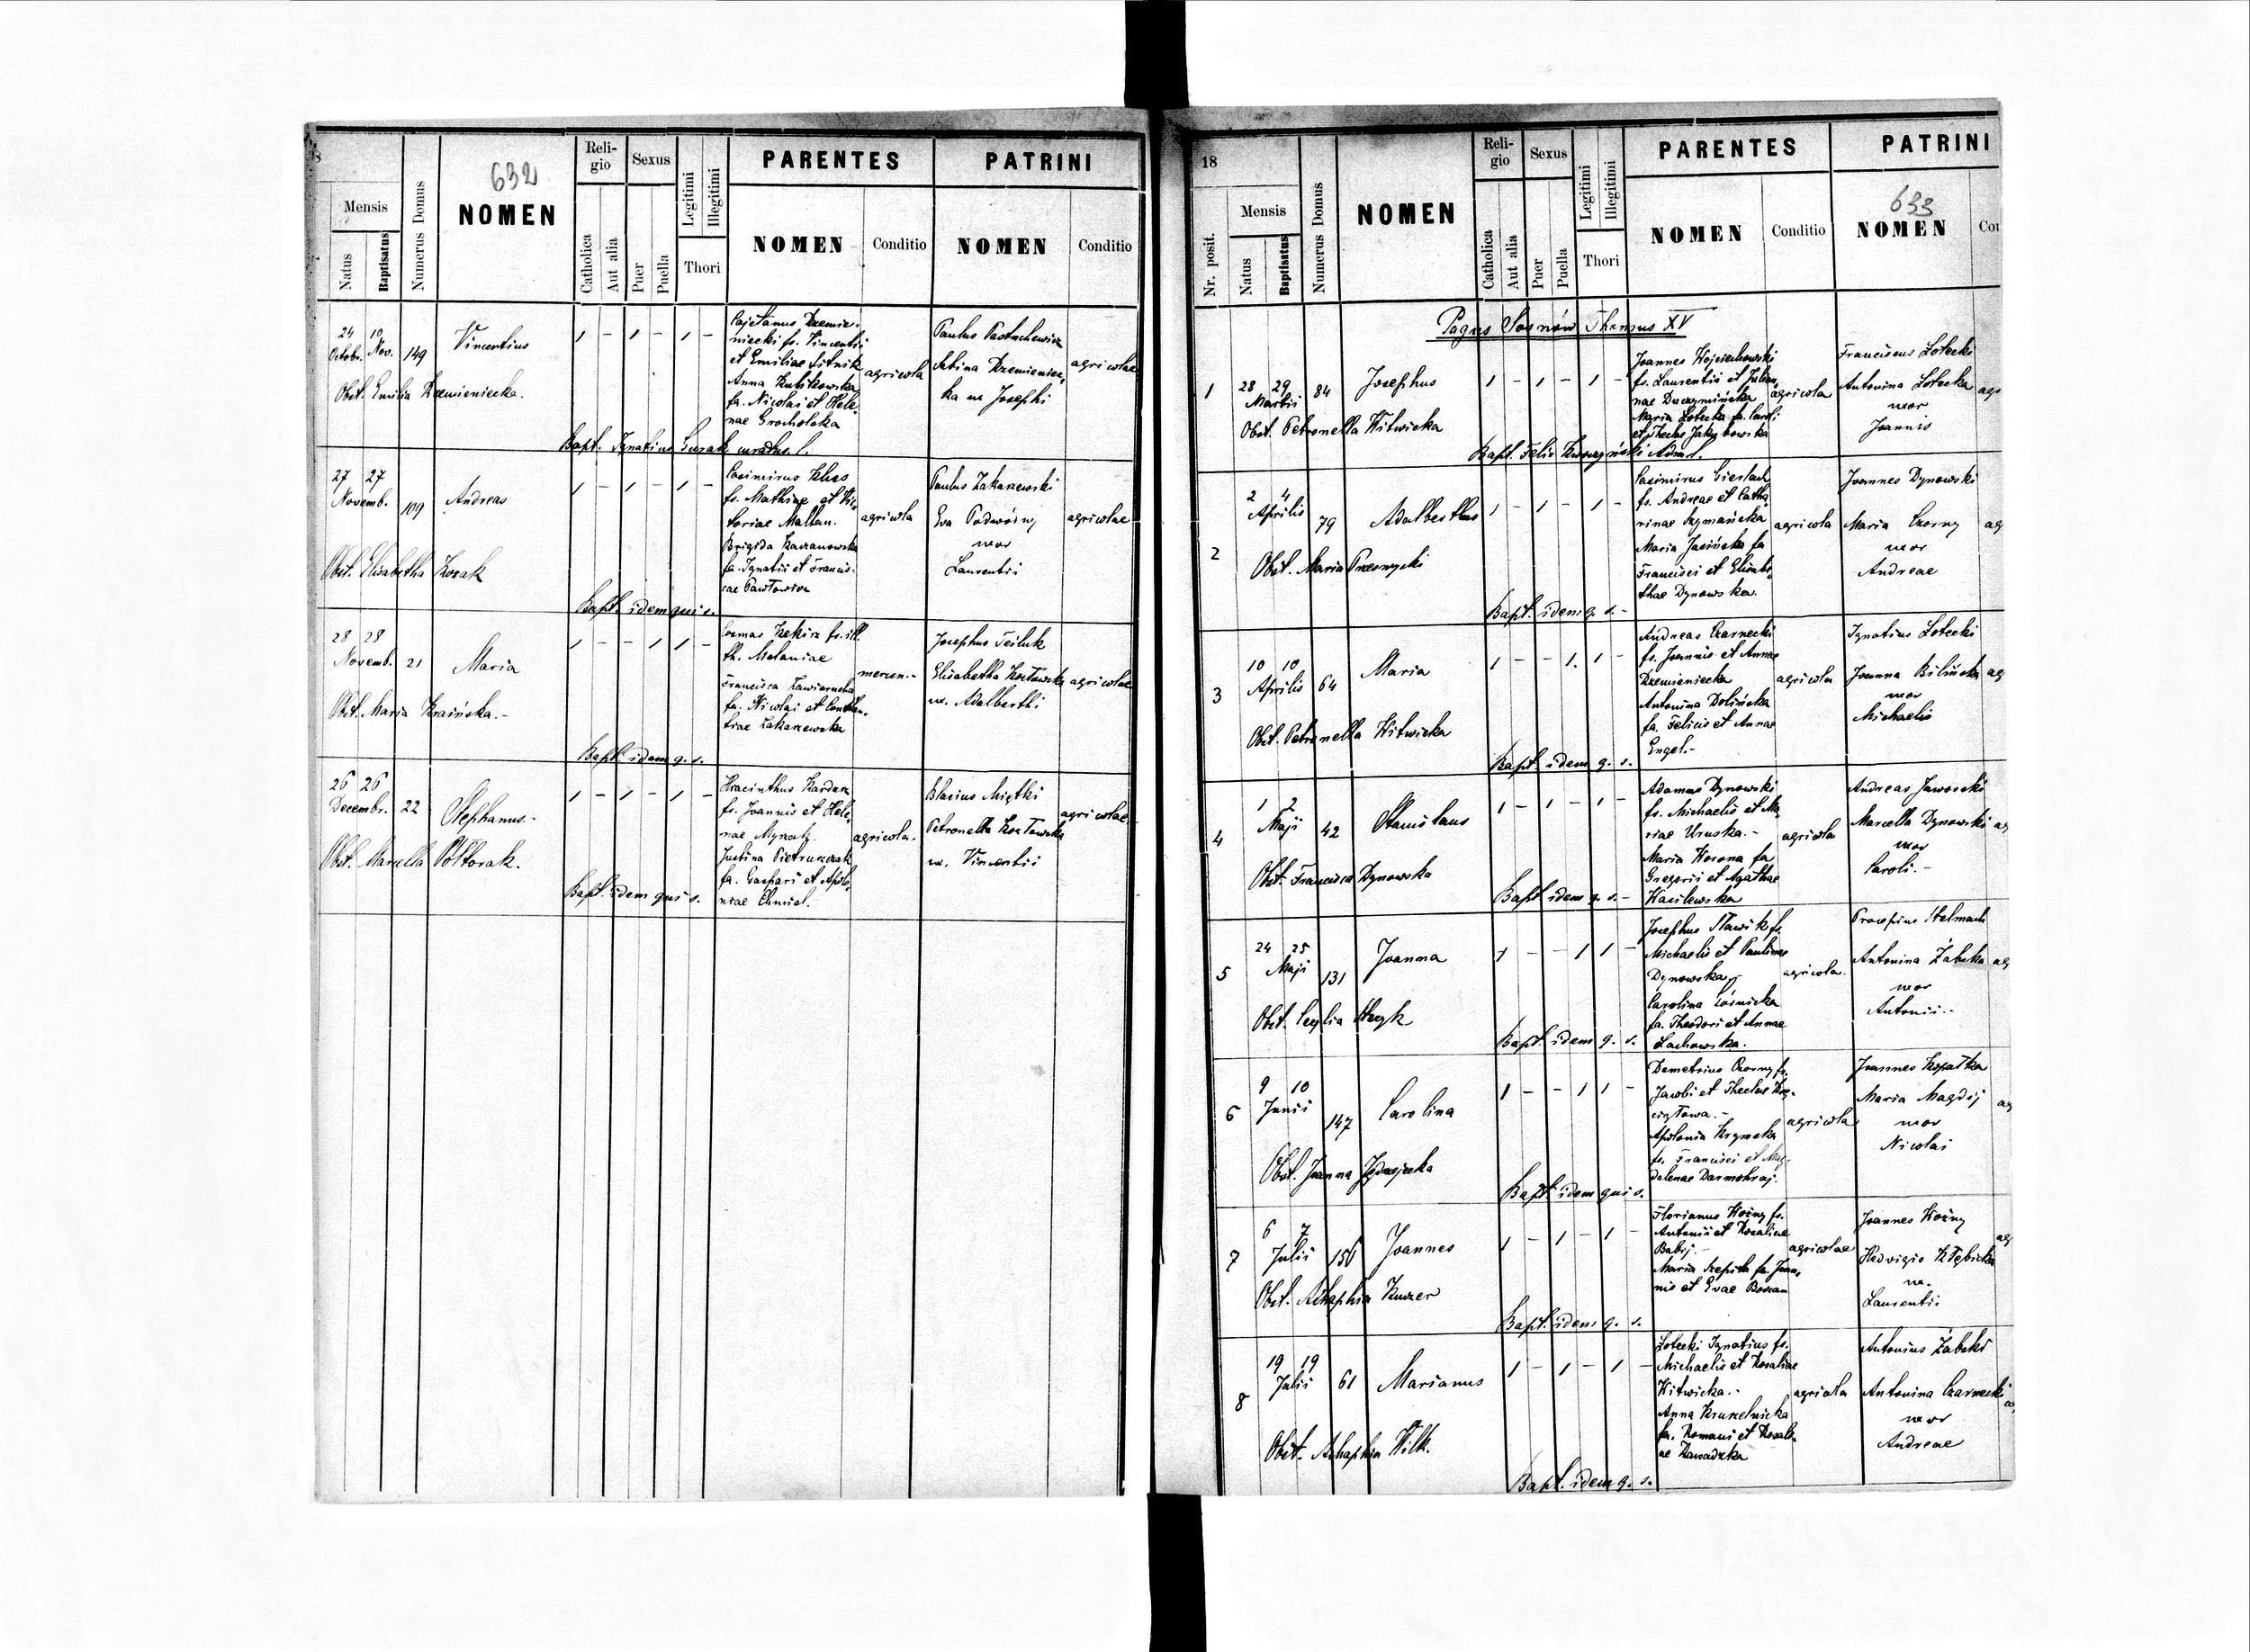 632
Mensis
Natus
Baptisatus
Numerus Domus
NOMEN
Religio
Catholica
Aut alia
Sexus
Puer
Puella
Legitimi
Illegitimi
Thori
PARENTES
NOMEN
Conditio
PATRINI
NOMEN
Conditio
24 10
Octobr. Nov. 149 Vincentius 1 - 1 - 1 -
Cajetanus Dzemie-
niecki fs. Vincentii
et Emiliae Sitnik
Anna Kubikowska
fa. Nicolai et Hele-
nae Grocholska
agricola
Paulus Pastuchewicz
Sabina Dzemieniec-
ka ux Josephi
agricolae
Obst. Emilia Dzemieniecka.
Bapt. Ignatius Gurak curatus l.
27 27
Novemb. 109 Andreas 1 - 1 - 1 -
Casimirus Klus
fs. Mathiae et Vic-
toriae Maltan.
Brigida Kaczanowska
fa. Ignatii et Francis-
cae
agricola
Paulus Zakarzewski
Eva Podwóiny
uxor
Laurentii
agricolae
Obst. Elisabetha Kozak
Bapt. idem qui s.
28 28
Novemb. 21 Maria 1 - - 1 1 -
Cosmas fs. ill.
th. Melaniae
Francisca Zawierucha
fa. Nicolai et Constan-
tiae Zakarzewska
mercen.-
Josephus Tesluk
Elisabetha Kozłowska
ux. Adalberthi
agricolae
Obst. Maria Kraińska.-
Bapt. idem q. s.
26 26
Decembr. 22 Stephanus.- 1 - 1 - 1 -
Hiacinthus
fs. Joannis et Hele-
nae
Justina Pietruszczak
fa. Gaspari et Apolo-
niae Chmiel.
agricola.
Blasius Miętki
Petronella Kozłowska
ux. Vincentii
agricolae
Obst. Marcella Półtorak.
Bapt. idem qui s.
18
633
Nr. posit.
Mensis
Natus
Baptisatus
Numerus Domus
NOMEN
Religio
Catholica
Aut alia
Sexus
Puer
Puella
Legitimi
Illegitimi
Thori
PARENTES
NOMEN
Conditio
PATRINI
NOMEN
Pagus Sosnów Thomus XV
1 28 29
Martii 84 Josephus 1 - 1 - 1 -
Joannes Wojciechowski
fs. Laurentii et Julian-
nae Duczymińska
Maria Łotecka fa. Caroli
et Theclae Jakubowska
agricola
Franciscus Łotecki
Antonina Łotecka
uxor
Joannis
Obst. Petronella Witwicka
Bapt. Felix Adm. l.
2 2 4
Aprilis 79 Adalberthus 1 - 1 - 1 -
Casimirus Gierlach
fs. Andreae et Catha-
rinae Szymańska
Maria Jasińska fa
Francisci et Elisabe-
thae Dynowska.
agricola
Joannes Dynowski
Maria Czorny
uxor
Andreae
Obst. Maria Przesnycki
Bapt. idem q. s.-
3 10 10
Aprilis 64 Maria 1 - - 1. 1 -
Andreas Czarnecki
fs. Joannis et Annae
Dzemieniecka
Antonina Dolińska
fa. Felicis et Annae
Engel.-
agricola
Ignatius Łotecki
Joanna Bilińska
uxor
Michaelis
Obst. Petronella Witwicka
Bapt. idem q. s.
4 1 2
Maji 42 Stanislaus 1 - 1 - 1 -
Adamus Dynowski
fs. Michaelis et Ma-
riae Uruska.-
Maria Worona fa
Gregorii et Agathae
Wasilewska
agricola
Andreas Jaworski
Marcella Dynowski
uxor
Caroli.-
Obst. Francisca Dynowska
Bapt. idem q. s.-
5 24 25
Maji 131 Joanna 1 - - 1 1 -
Josephus Stawik fs.
Michaelis et Paulinae
Dynowska
Carolina Łośnicka
fa. Theodori et Annae
Lachowska.
agricola.
Procopius Stelmach
Antonina Żabska
uxor
Antonii.-
Obst.
Bapt. idem q. s.
6 9 10
Junii 147 Carolina 1 - - 1 1 -
Demetrius Czorny fs.
Jacobi et Theclae

Apolonia Krymska
fa. Francisci et Mag-
dalenae Darmohraj.
agricola
Joannes Łopatka
Maria Magdij
uxor
Nicolai
Obst. Joanna Jędrzejecka
Bapt. idem qui s.
7 6 7
Julii 156 Joannes 1 - 1 - 1 -
Florianus Woźny fs.
Antonii et Rosaliae
Babij.-
Maria fa. Joan-
nis et Evae
agricolae
Joannes Woźny
Hedvigis Kłębicka
ux.
Laurentii
Obst. Achaphia
Bapt. idem q. s.
8 19 19
Julii 61 Marianus 1 - 1 - 1 -
Łotecki Ignatius fs.
Michaelis et Rosaliae
Witwicka.-
Anna Kruszelnicka
fa. Romani et Rosali-
ae Zawadzka
agricola
Antonius Żabski
Antonina Czarnecki
uxor
Andreae
Obst. Achaphia Wilk.
Bapt. idem q. s.